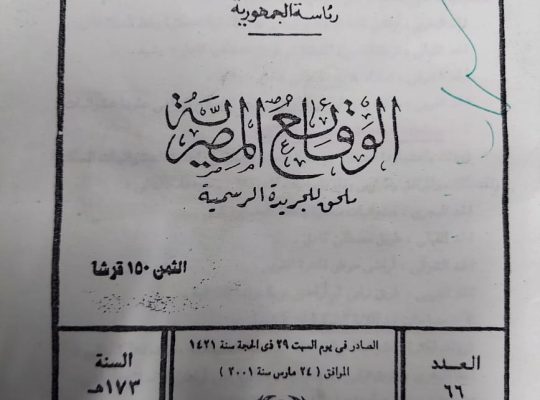 رئاسة الجمهورية
الوقائع المصرية
ملحق للجريدة الرسمية
الثمن ١٥٠ قرشا
العدد
٦٦
الصادر فى يوم السبت ٢٩ ذى الحجة سنة ١٤٢١
الموافق ( ٢٤ مارس سنة ٢٠٠١ )
السنة
١٧٣هـ